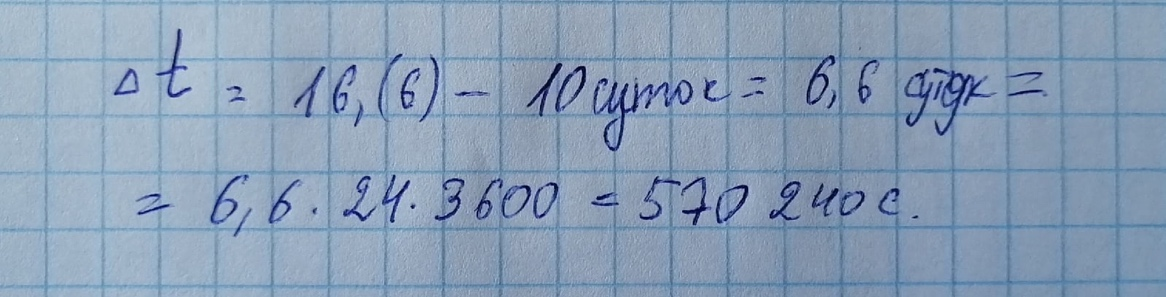 Δt = 16,(6) - 10 суток = 6,6 суток =
= 6,6 · 24 · 3600 = 570 240 с.